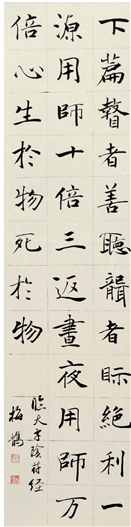 下篇瞽者善聽聾者眎絕利一
源用師十倍三返晝夜用師万
倍心生於物死於物
臨大字陰符經
梅鶴